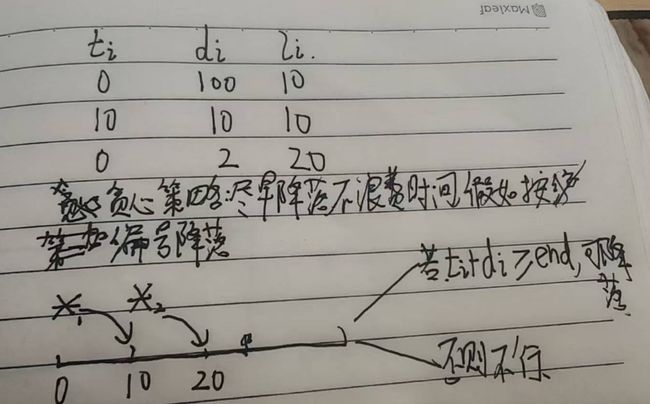 Maxleaf
ti di li.
0 100 10
10 10 10
0 2 20
贪心策略:尽早降落不浪费时间 假如按
编号降落
若ti+di≥end,可降
落
1 2
否则不行
0 10 20